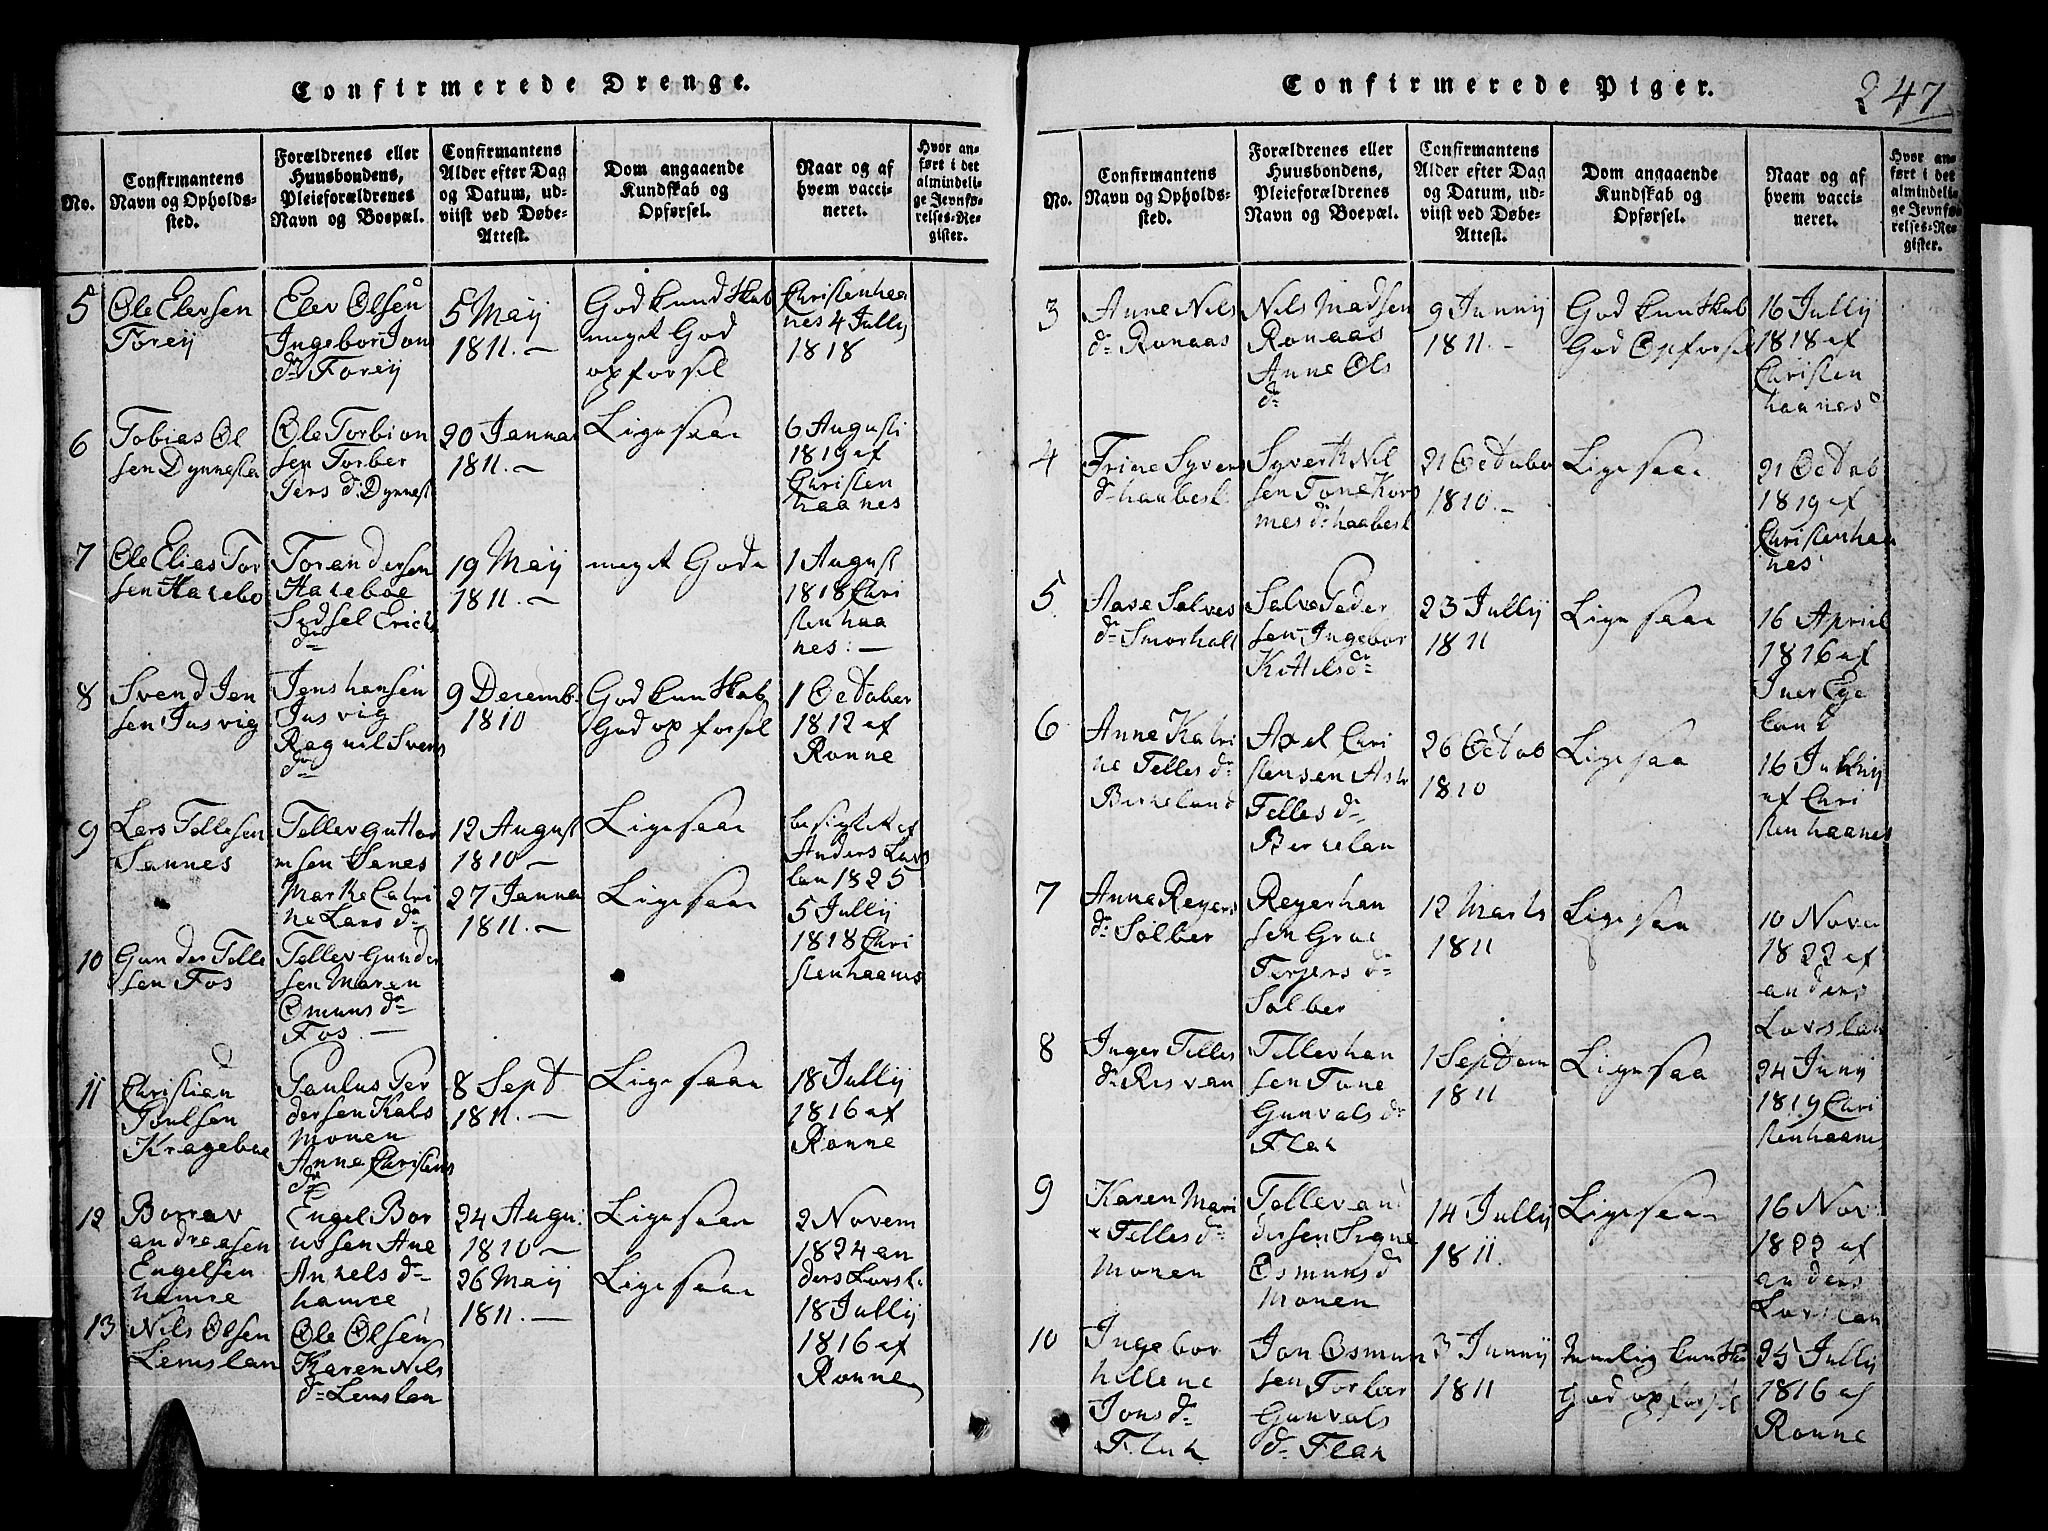 Confirmerede Drenge.
No.
Confirmantens
Navn og Opholds-
sted.
Forældrenes eller
Huusbondens,
Pleieforældrenes
Navn og Boepæl.
Confirmantens
Alder efter Dag
og Datum, ud-
viist ved Døbe-
Attest.
Dom angaaende
Kundskab og
Opførsel.
Naar og af
hvem vacci-
neret.
Hvor an-
ført i det
almindeli-
ge Jevnfø-
relses-Re-
gister.
5
Ole Elevsen
Foreÿ
Elev Olsen
Ingebor Jons
dr Foreÿ
5 Maÿ
1811.—
God kundskab
meget God
opforsel
Christenhaa
nes 4 Jullÿ
1818
6
Tobias Ol
sen Dynnesta
Ole Torbion
sen Torber
Jers dr Dynnest
20 Januar
1811.—
Ligesaa
6 Augusti
1819 af
Christen
haanes
7
Ole Elias Tor
sen Harebo
Tor andersen
Hareboe
Sidsel Erichs
dr
19 Maÿ
1811.—
meget Gode
1 August
1818 Chri
stenhaa
nes.—
8
Svend Jen
sen Jusvig
Jens hansen
Jusvig
Ragnil Svens
dr
9 Decemb.
1810
God kunskab
God opforsel
1 October
1812 af
Ronne
9
Lars Tellesen
Sannes
Tellev Guttor
msen Sanes
Marthe Catri
ne Lars dr
12 August
1810—
Ligesaa
besigtet af
Anders Lavs
lan 1825
10
Gunder Telle
sen Fos
Tellev Gunder
sen Maren
Osmuns dr
Fos.—
27 Janua
1811.—
Ligesaa
5 Jullÿ
1818 Chri
stenhaanes
11
Christian
Poulsen
Krageboe
Paulus Per
dersen Kabs
Monen
Anne Christens
dr
8 Sept
1811.—
Ligesaa
18 Jullÿ
1816 af
Ronne
12
Borrav
andreasen
Engelsen
hamre
Engel Bor
uvsen Ane
Ankels dr
hamre
24 Augu
1810—
Ligesaa
2 Novem
1824 an
ders Lovsl
13
Nils Olsen
Lemslan
Ole Olsen
Karen Nils
dr Lemslan
26 Maÿ
1811.—
Ligesaa
18 Jullÿ
1816 af
Ronne
Confirmerede Piger.
247
No.
Confirmantens
Navn og Opholds-
sted.
Forældrenes eller
Huusbondens,
Pleieforældrenes
Navn og Boepæl.
Confirmantens
Alder efter Dag
og Datum, ud-
viist ved Døbe-
Attest.
Dom angaaende
Kundskab og
Opførsel.
Naar og af
hvem vacci-
neret.
Hvor an-
ført i det
almindeli-
ge Jevnfø-
relses-Re-
gister.
3
Anne Nils
dr Ronaas
Nils Madsen
Ronaas
Anne Ols
dr
9 Junnÿ
1811.—
God kunskab
God Opforsel
16 Jullÿ
1818 af
Christen
haanes
4
Trine Syvers
dr haabest
Syvert Nil
sen Tone Kors
mes dr haabest
21 October
1810.—
Ligesaa
21 Octob
1819 af
Christenhaa
nes
5
Aase Salves
dr Smorhalt
Salve Peder
sen Ingebor
Kittels dr
23 Jullÿ
1811
Ligesaa
16 April
1816 af
Iver Ege
lant
6
Anne Katri
ne Telles dr
Birkeland
Axel Chri
stensen Asb
Telles dr
Berkelan
26 Octob
1810
Ligesaa
16 Jullÿ
af Chri
stenhaanes
7
Anne Reyers
dr Solber
Reyer han
sen Groe
Terjers dr
Solber
12 Marts
1811
Ligesaa
10 Nove
1822 af
anders
Lovslan
8
Inger Telles
dr Risvan
Tellev han
sen Tone
Gunvals dr
Flak
1 Septem
1811
Ligesaa
24 Junÿ
1819 Chri
stenhaanes
9
Karen Mari
e Telles dr
Monen
Tellev an
dersen Signe
Osmuns dr
Monen
14 Jullÿ
1811.
Ligesaa
16 Nov
1822 af
anders
Lovslan
10
Ingebor
hellene
Jons dr
Flak
Jon Osmun
sen Torbor
Gunvals
dr Flak
3 Junnÿ
1811
kunska
God opforsel
25 Jullÿ
1816 af
Ronne